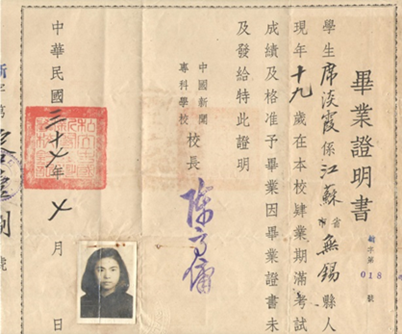 畢業證明書
新字第018號
學生席淡霞係江蘇省無錫縣人
市
現年十九歲在本校肄業期滿考試
成績及格准予畢業因畢業證書未
及發給特此證明
中國新聞
專科學校
校長 陳高傭
中華民國三十七年七月 日
新字第
號